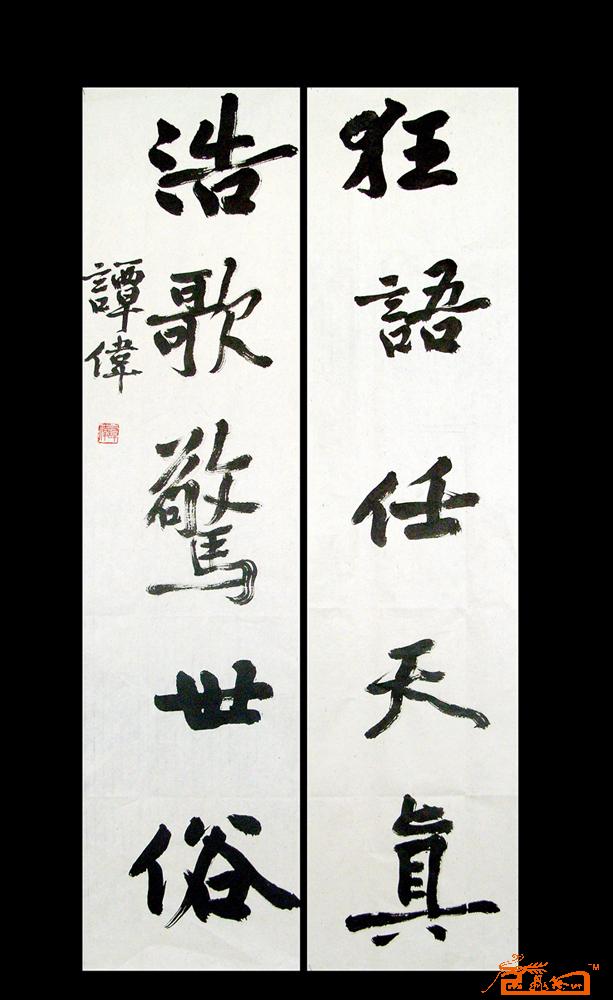 狂語任天真
浩歌驚世俗
譚偉
TM